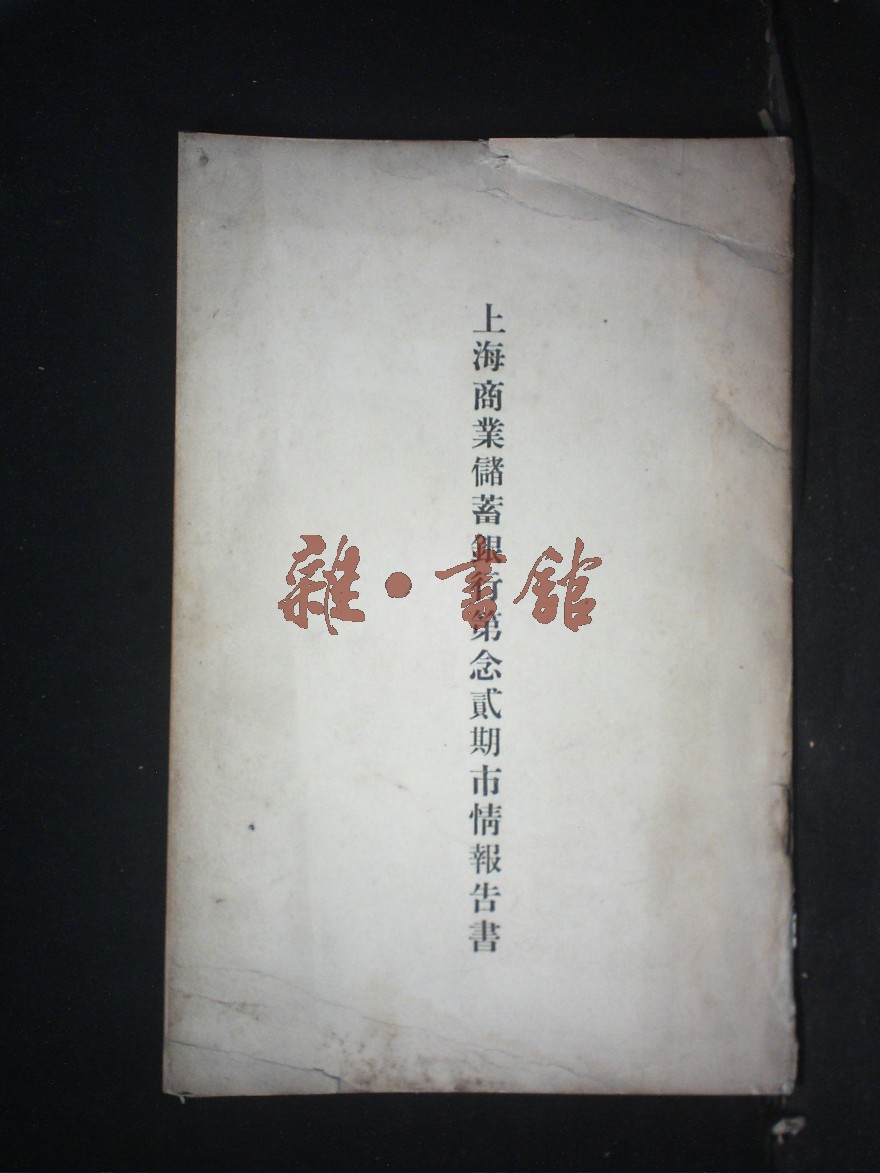 上海商業儲蓄銀行第念貳期市情報告書
雜·書館